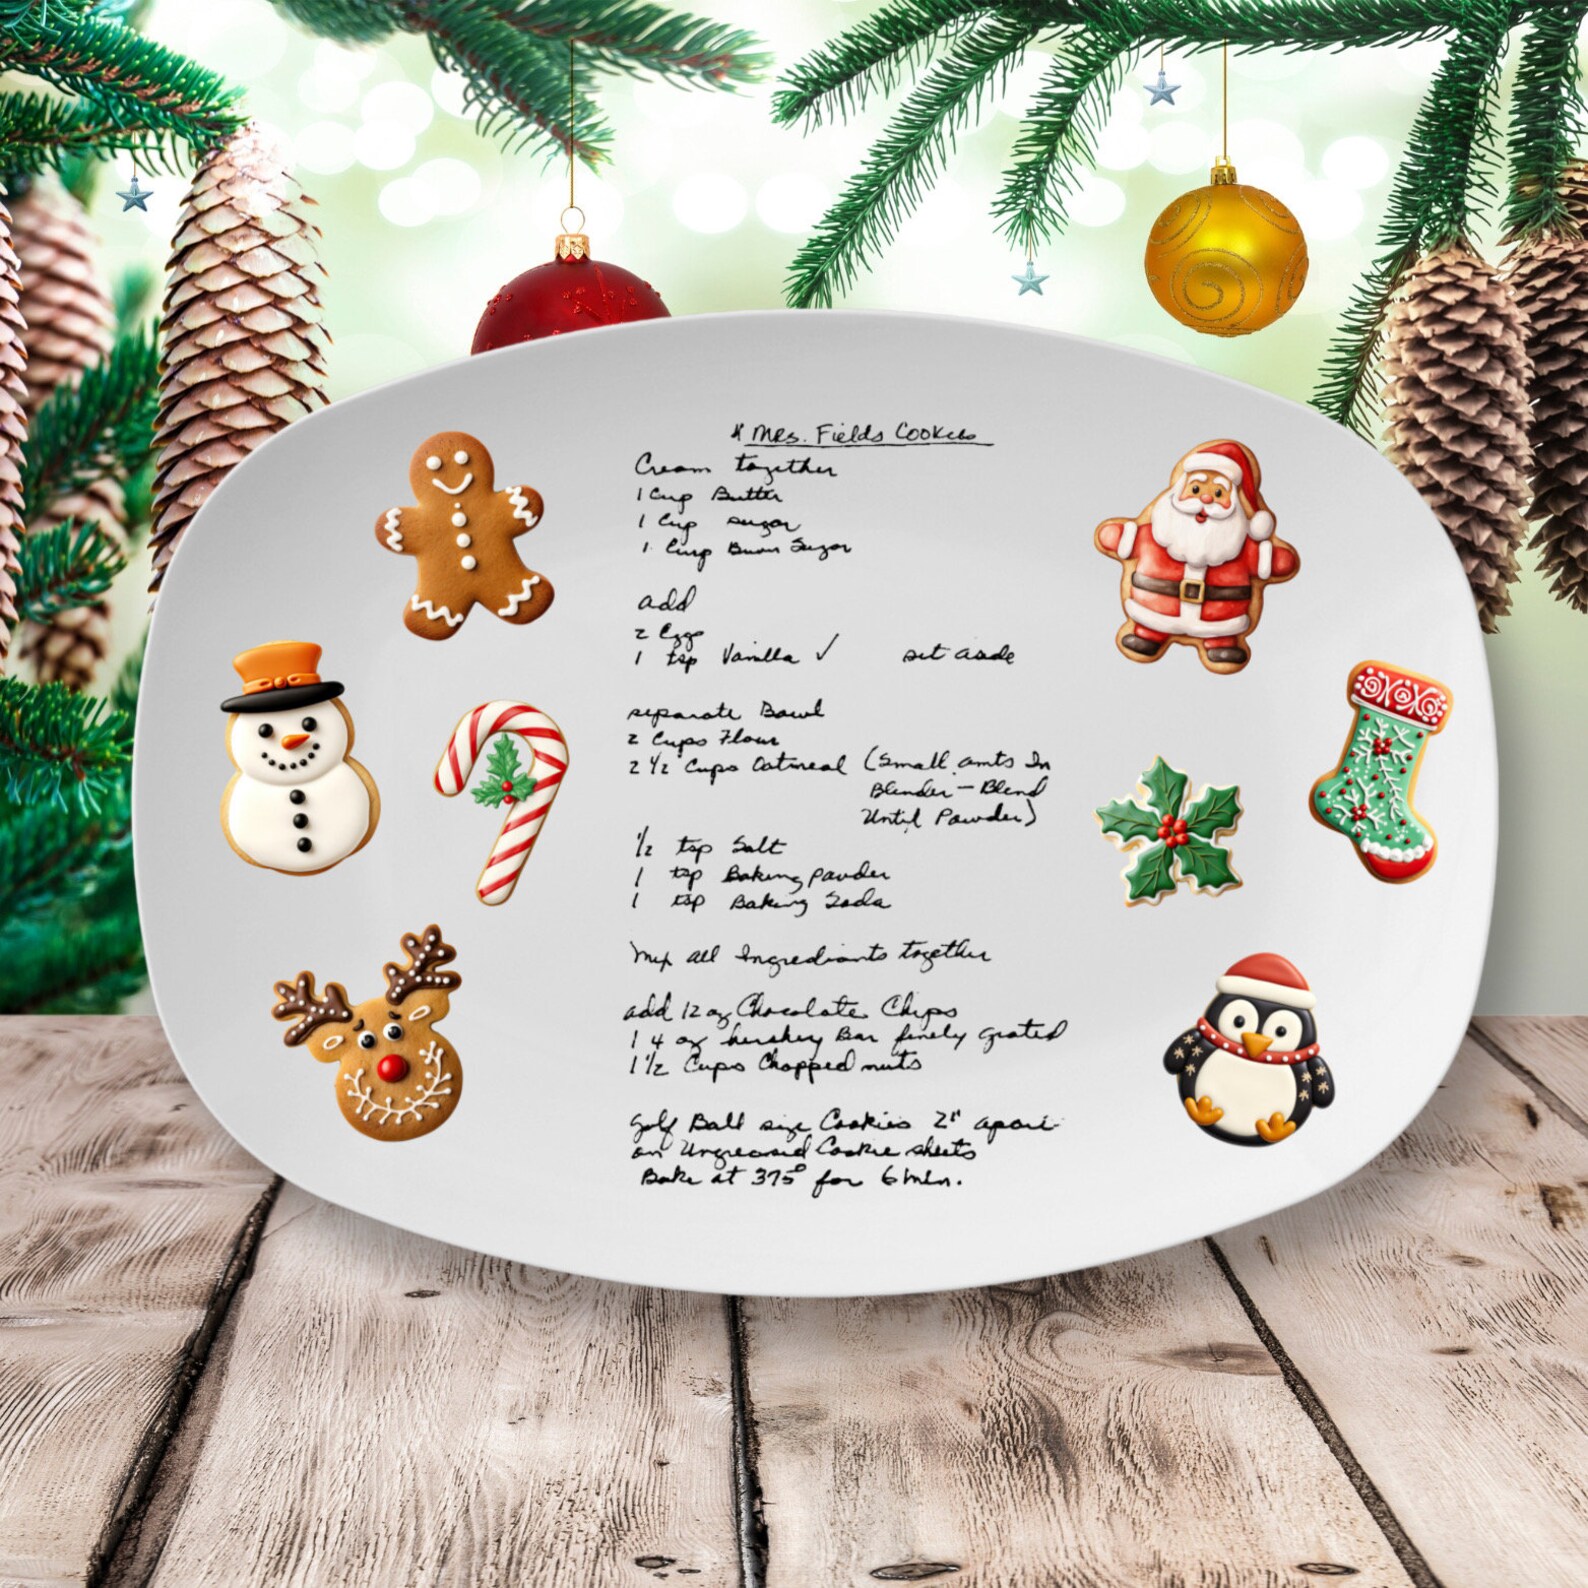 * Mrs. Fields Cookies
Cream together
1 Cup Butter
1 Cup sugar
1 Cup Brown Sugar
add
2 Eggs
1 tsp Vanilla ✓ set aside
separate Bowl
2 Cups Flour
2 1/2 Cups Oatmeal (Small amts In
Blender - Blend
Until Powder)
1/2 tsp Salt
1 tsp Baking powder
1 tsp Baking Soda
Mix all Ingrediants together
add 12 oz Chocolate Chips
1 4 oz hershey Bar finely grated
1 1/2 Cups Chopped nuts
Golf Ball size Cookies 2" apart
on Ungreased Cookie sheets
Bake at 375° for 6 min.